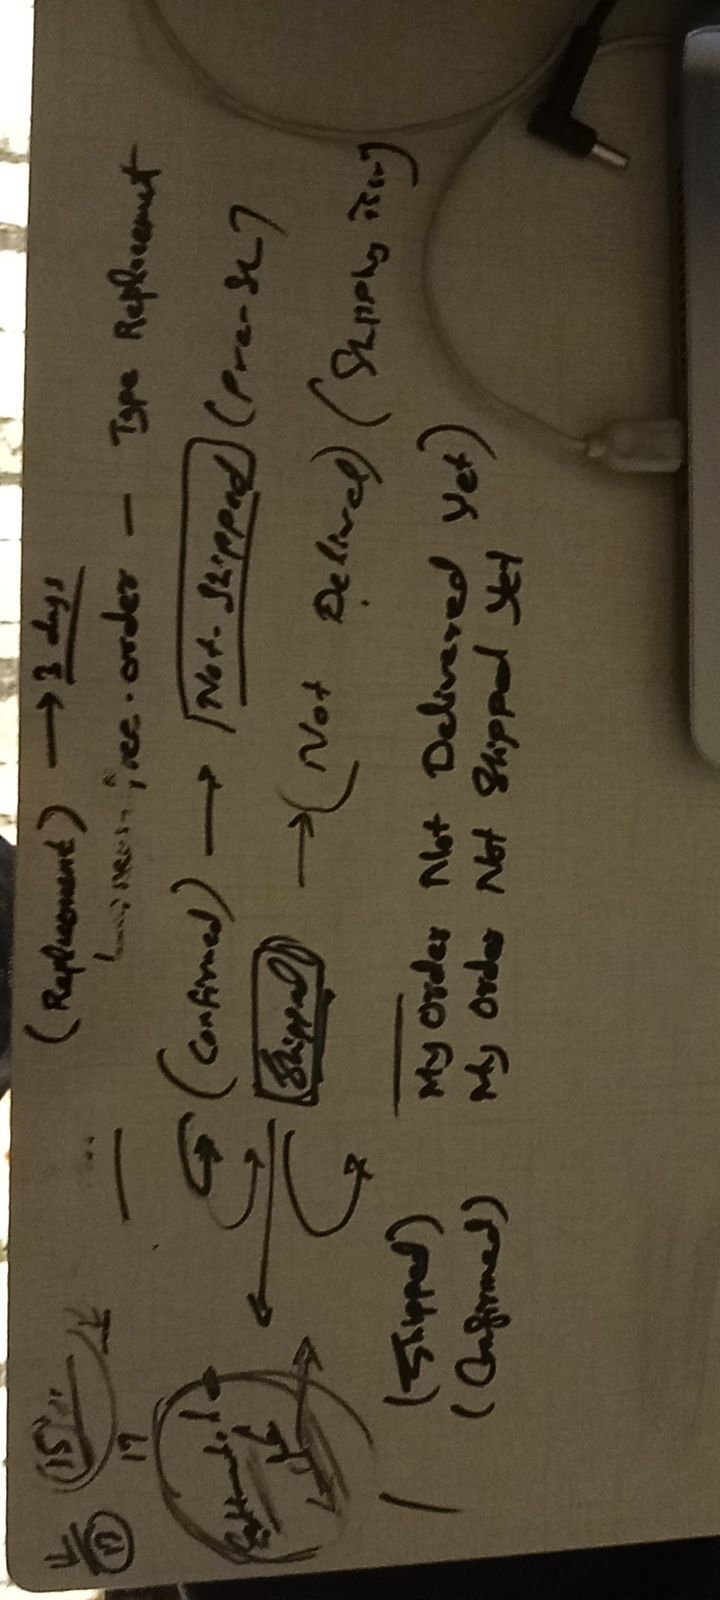 15
17
11
(Replacement) → 3 days
order - Type Replacement
(Confirmed) → [Not-Shipped] (Pre-SL)
Shipped → (Not Delivered) (
(Shipped) My order Not Delivered Yet)
(Confirmed) My order Not Shipped Yet